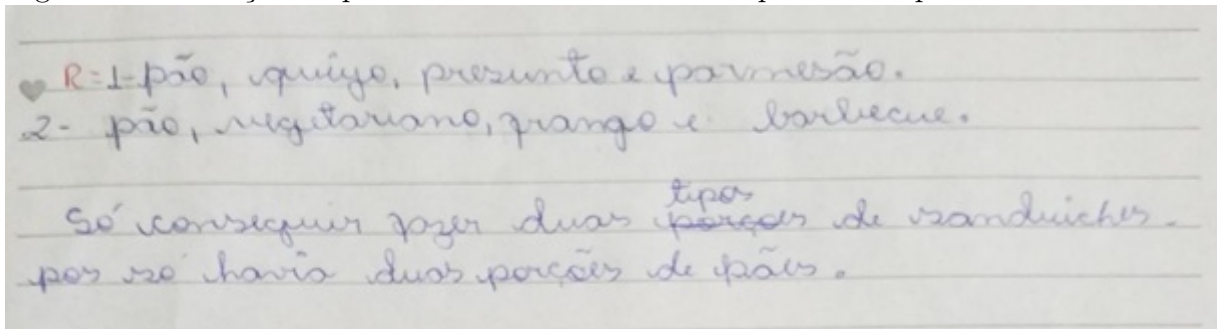 R=1-pão, queijo, presunto e parmesão.
2- pão, vegetariano, frango e barbecue.
tipos
Só conseguir fazer duas porções de sanduiches.
pos só havia duas porcões de pães.